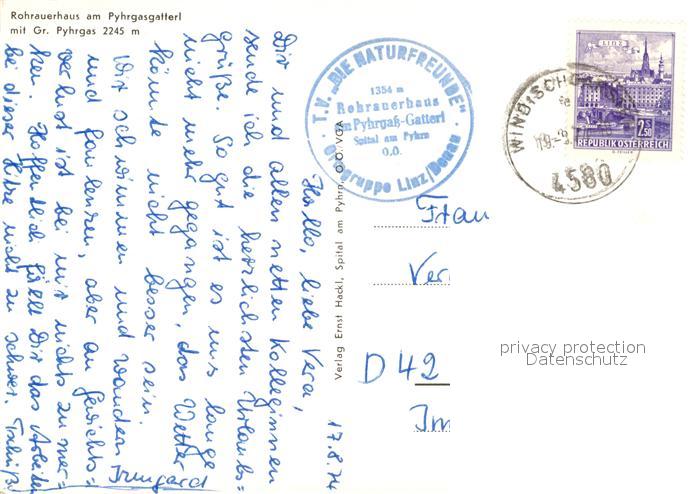 Rohrauerhaus am Pyhrgasgatterl
mit Gr. Pyhrgas 2245 m
17.8.74
Hallo, liebe Vera,
Dir und allen netten Kolleginnen
sende ich die herzlichsten Urlaubs=
grüße. So gut ist es uns lange
nicht mehr gegangen, das Wetter
könnte nicht besser sein.
Wir schwimmen und wandern
und faulenzen, aber an Gewichts=
verlust ist bei mir nichts zu mer=
ken. Hoffentlich fällt Dir das Arbeiten
bei dieser Hitze nicht zu schwer. Tschüß
Irmgard
Verlag Ernst Hackl, Spital am Pyhrn, O.Ö. VGA
T.V. „DIE NATURFREUNDE"
1354 m
Rohrauerhaus
am Pyhrgaß-Gatterl
Spital am Pyhrn
O.Ö.
Ortsgruppe Linz/Donau
WINDISCHG
19.-8.
4580
LINZ
2.50
REPUBLIK ÖSTERREICH
Frau
Ver
D 42
Im
privacy protection
Datenschutz